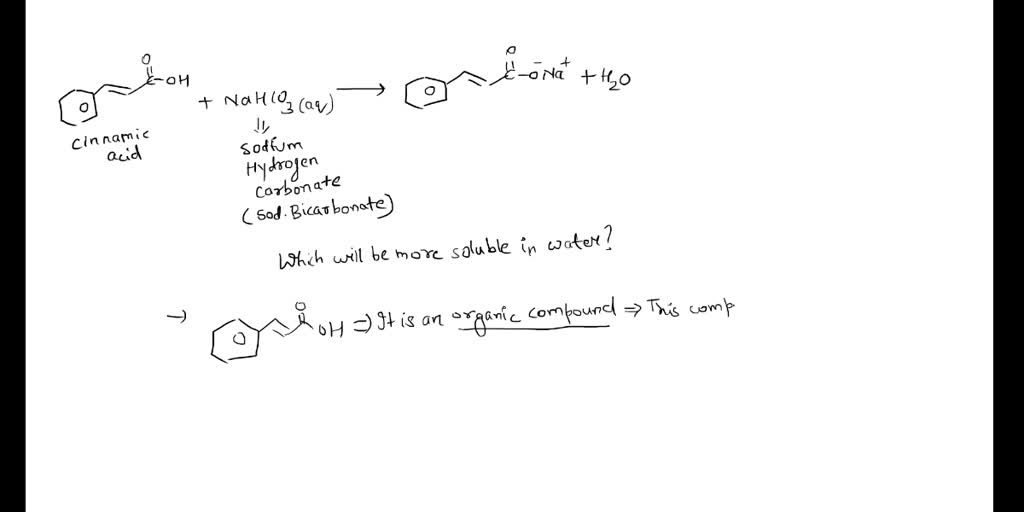 O
C-OH
+ NaHCO3(aq) → O C-ŌNa+ + H2O
cinnamic
acid
⇓
sodium
Hydrogen
carbonate
(Sod. Bicarbonate)
Which will be more soluble in water?
→ O OH ⇒ It is an organic compound ⇒ This comp